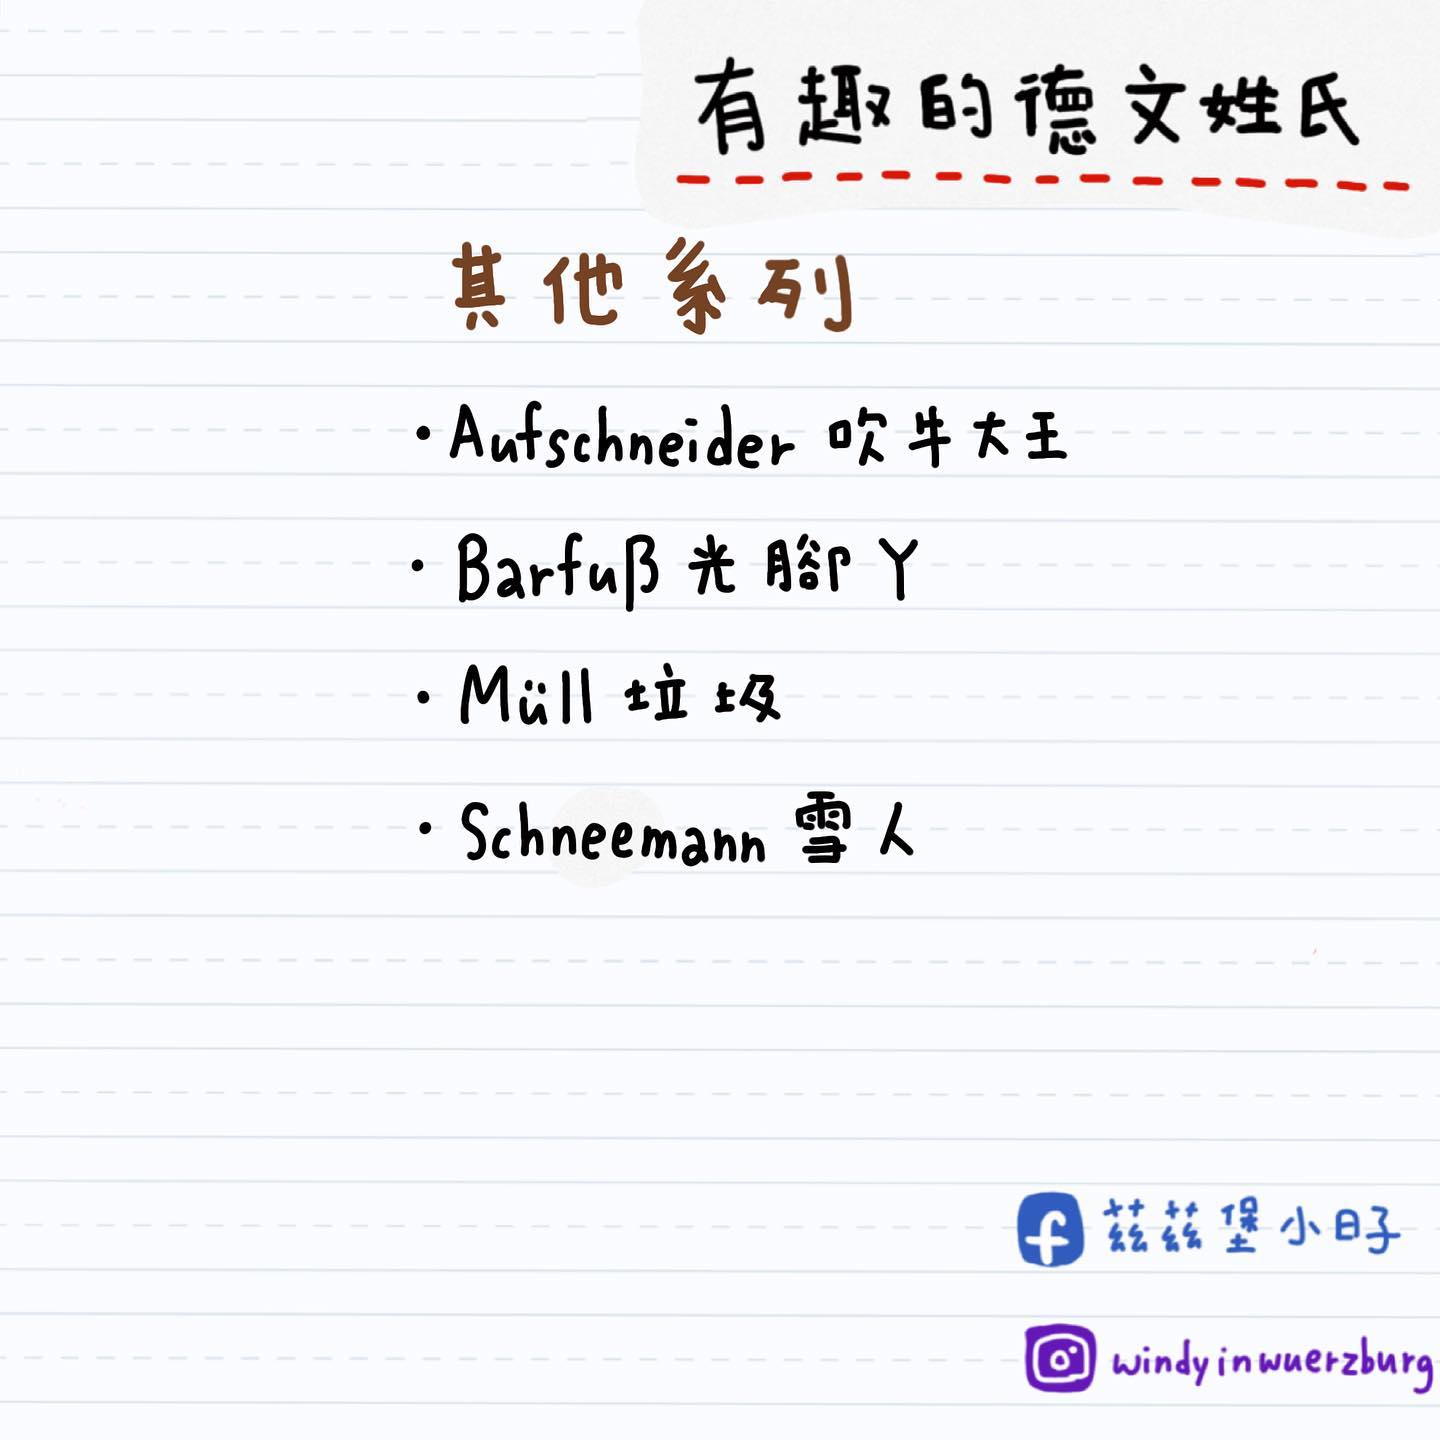 有趣的德文姓氏
其他系列
• Aufschneider 吹牛大王
• Barfuß 光腳丫
• Müll 垃圾
• Schneemann 雪人
茲茲堡小日子
windyinwuerzburg